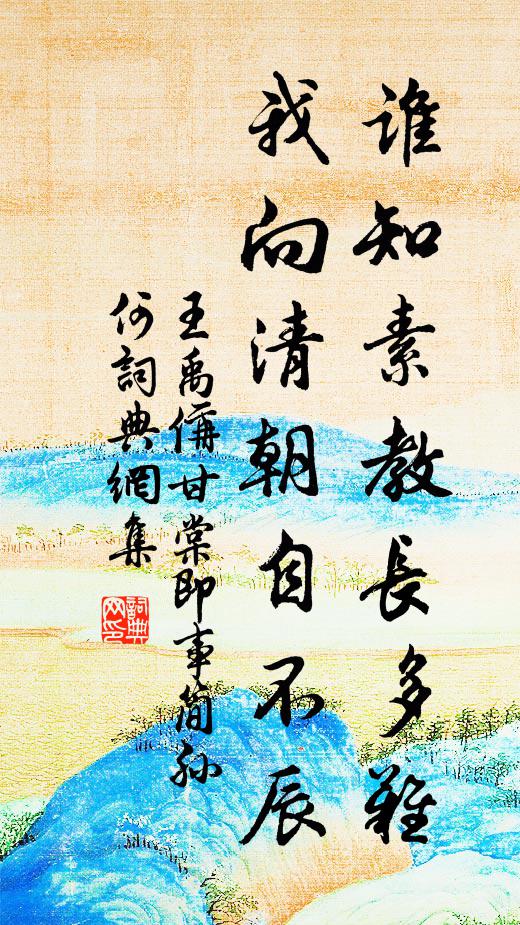 誰知素教長多難
我向清朝自不辰
王禹偁甘棠即事簡孫
何詞典網集
詞典網印